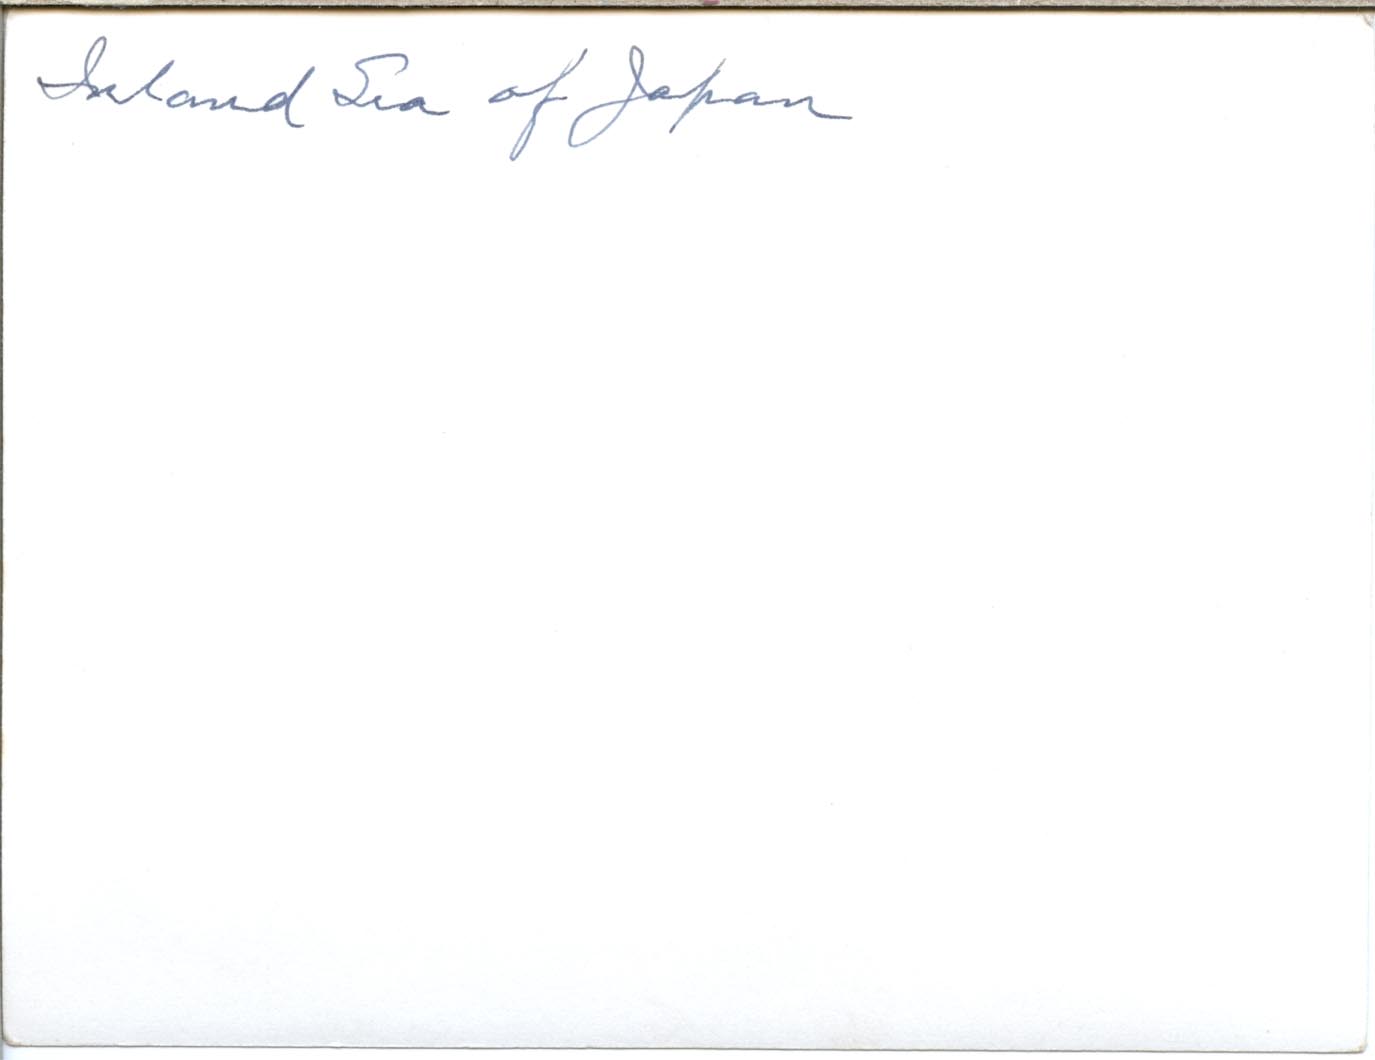 Inland Sea of Japan